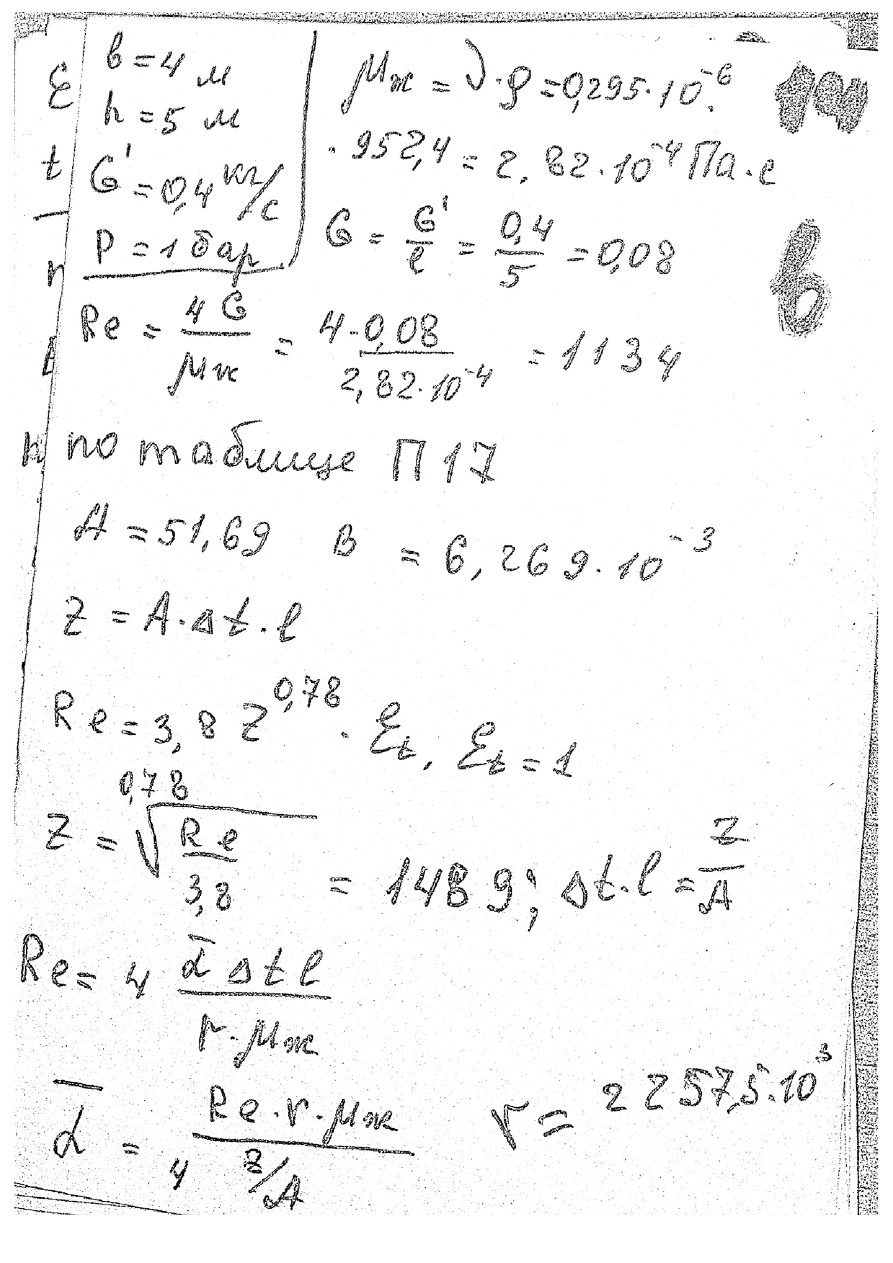 в = 4 м
h = 5 м
G' = 0,4 кг/с
P = 1 бар
μж = ν·ρ = 0,295·10⁻⁶·
·952,4 = 2,82·10⁻⁴ Па·с
G = G'/l = 0,4/5 = 0,08
Re = 4G/μж = 4·0,08/2,82·10⁻⁴ = 1134
по таблице П17
A = 51,69 B = 6,269·10⁻³
Z = A·Δt·l
Re = 3,8 Z^0,78 · Ɛt, Ɛt = 1
Z = ^0,78√(Re/3,8) = 1489; Δt·l = Z/A
Re = 4 ᾱΔtl/r·μж
ᾱ = Re·r·μж/4 Z/A r = 2257,5·10³